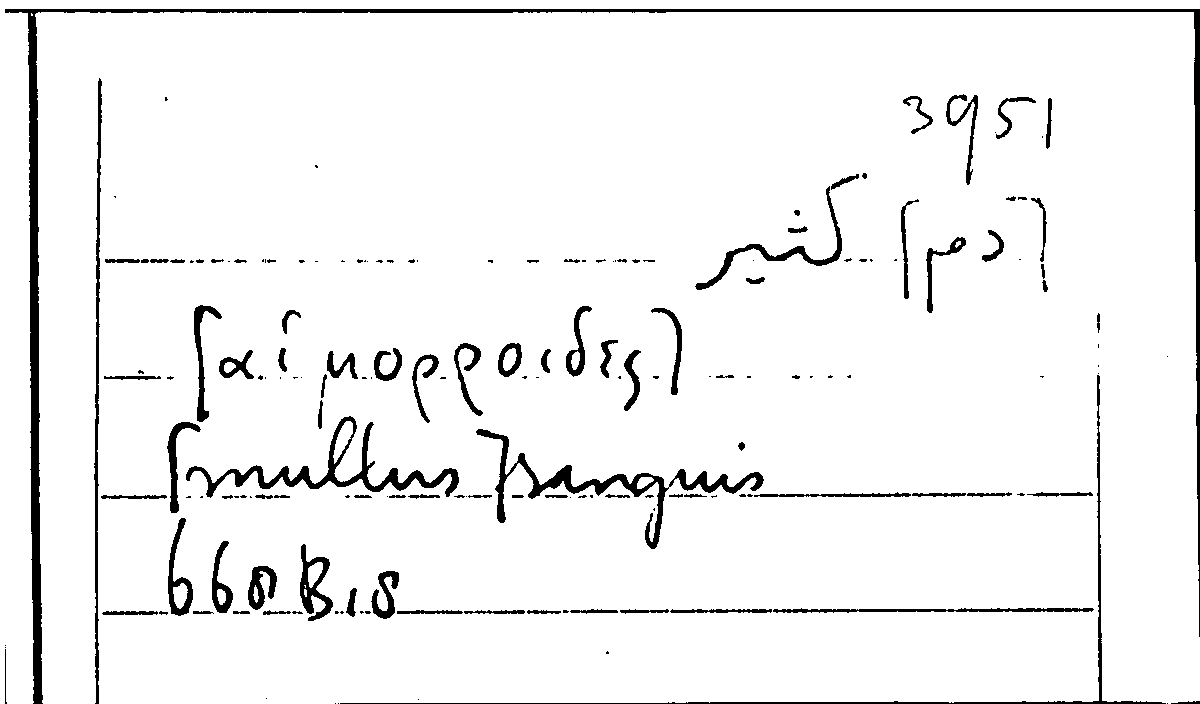 3951
[دم] كثير
[αἱμορροιδες]
[multus] sanguis
668 B 18